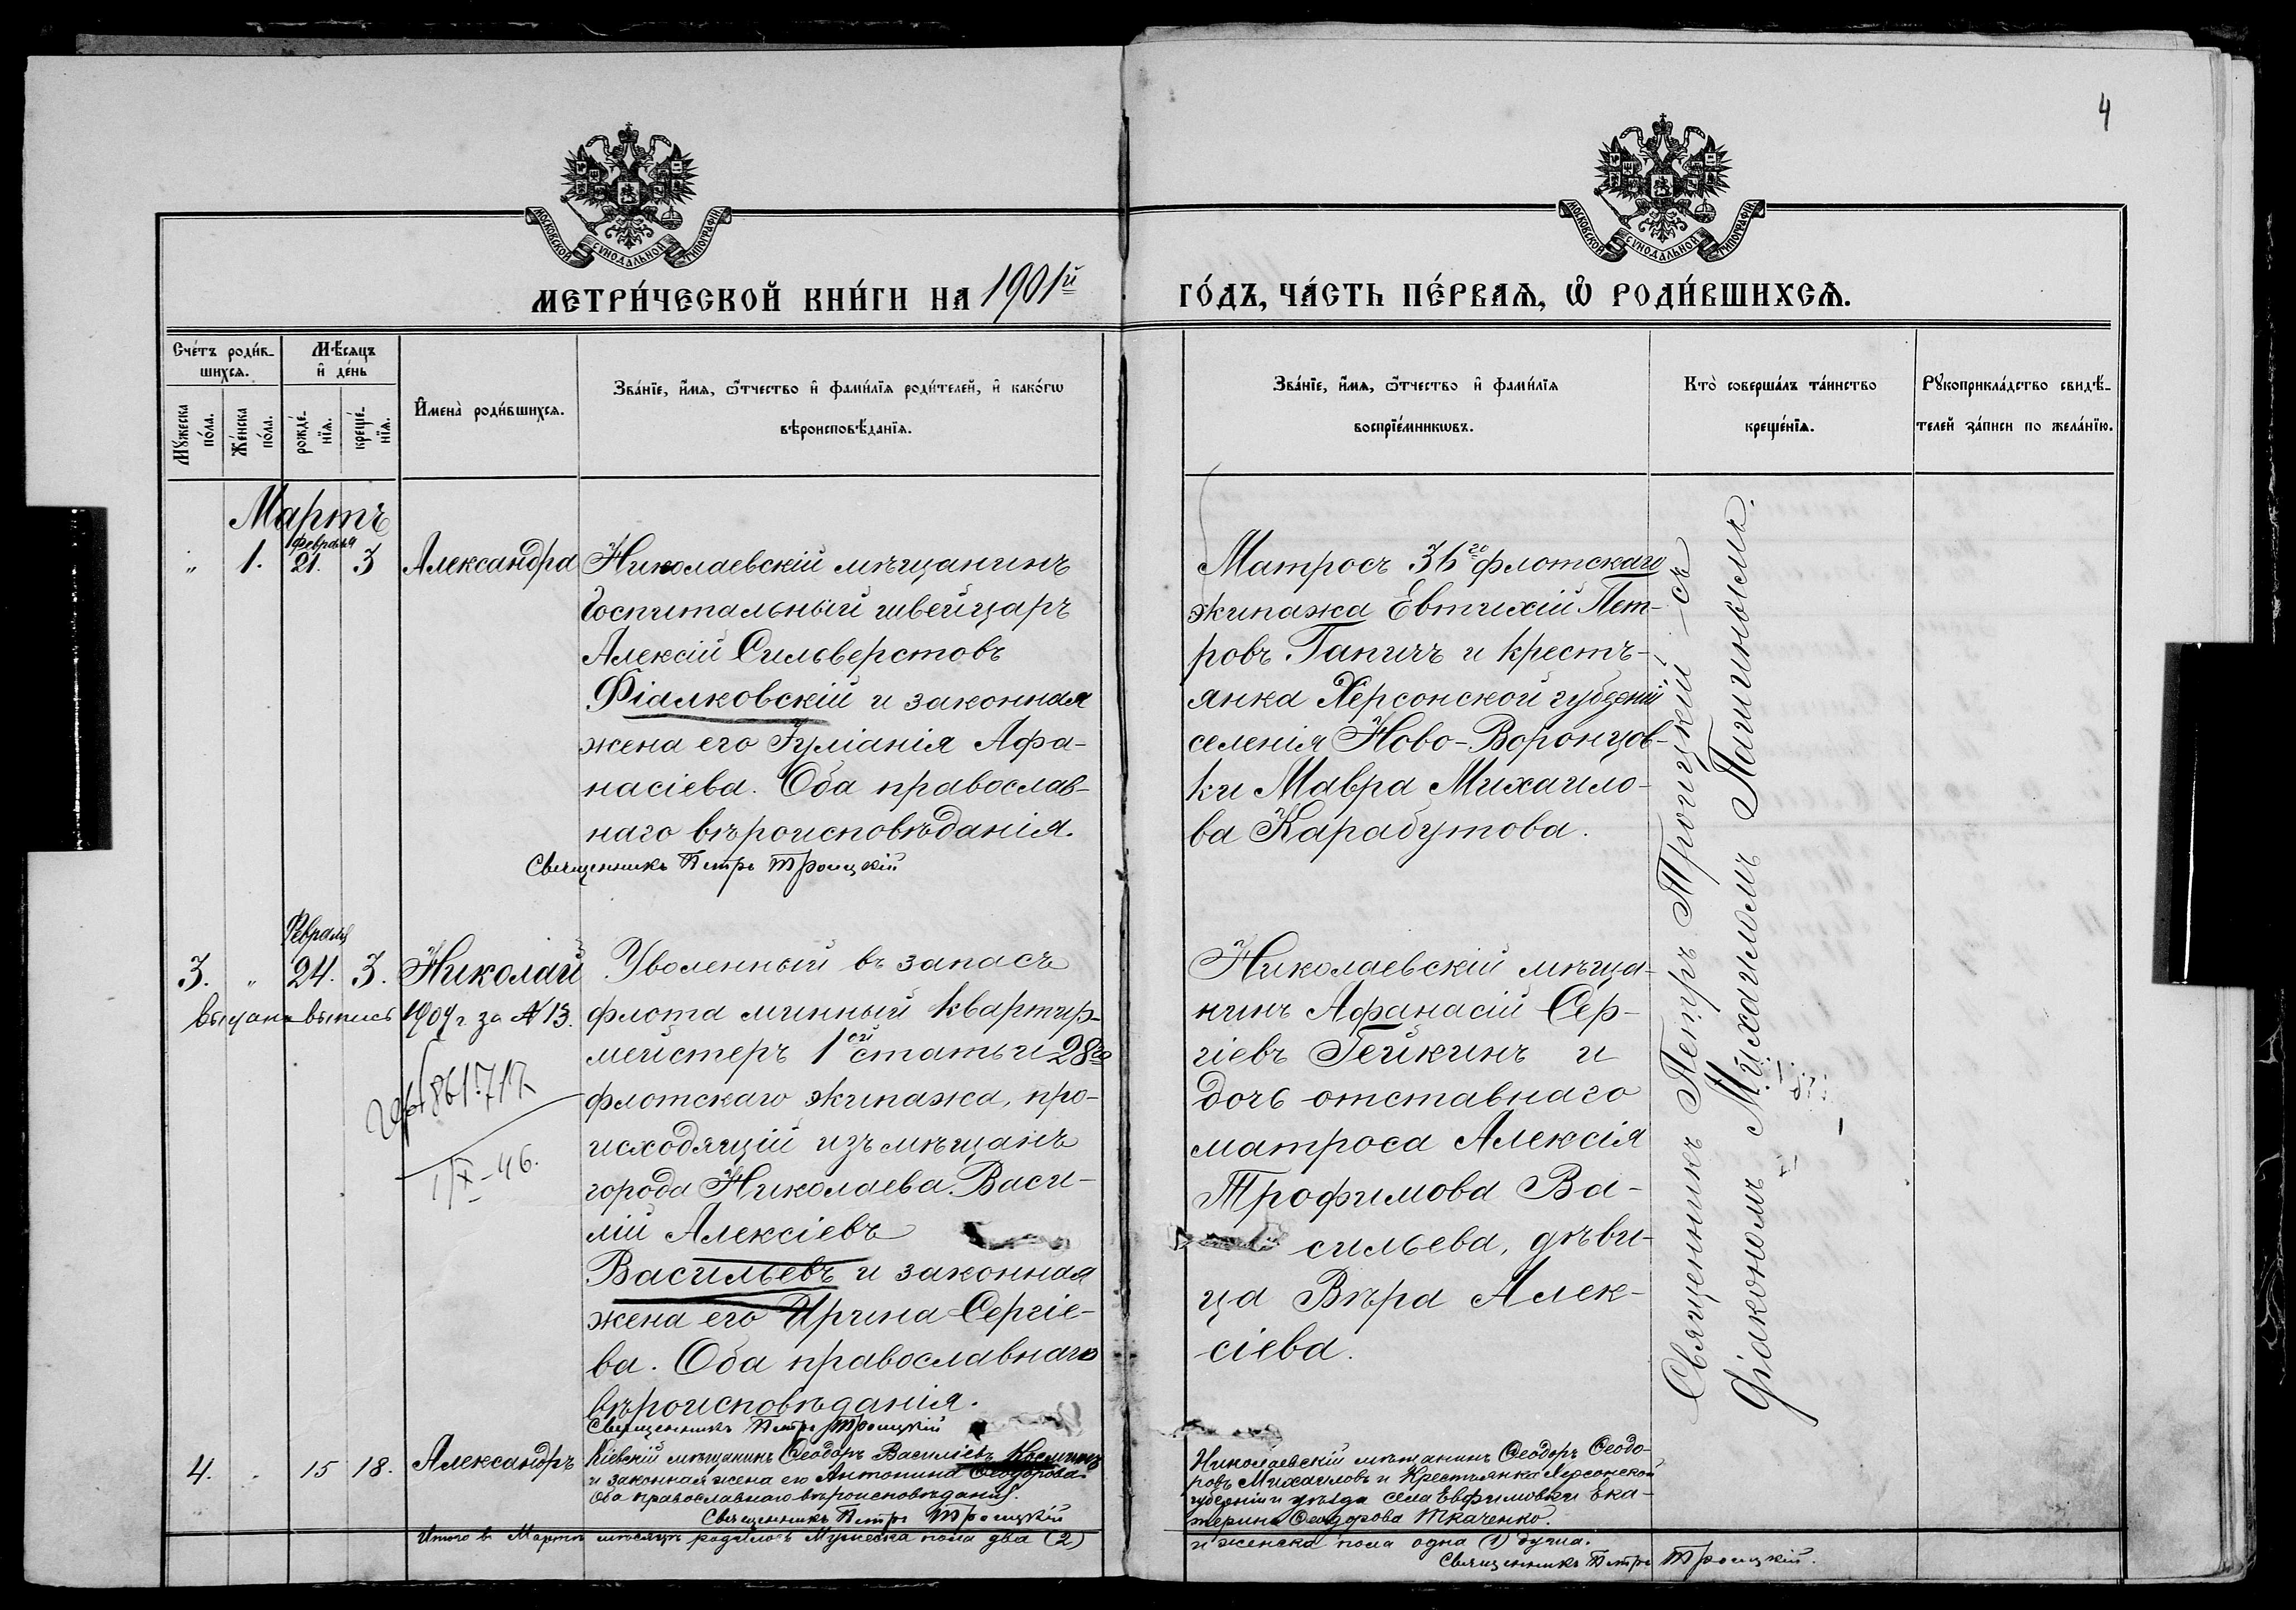 4
МОСКОВСКОЙ СѴНОДАЛЬНОЙ ТИПОГРАФІИ
МОСКОВСКОЙ СѴНОДАЛЬНОЙ ТИПОГРАФІИ
МЕТРИ́ЧЕСКОЙ КНИ́ГИ НА 1901й
ГО́ДЪ, ЧА́СТЬ ПЕ́РВАѦ, Ѽ РОДИ́ВШИХСѦ.
Сче́тъ роди́в-
шихсѧ.
Мѣ́сѧцъ
и҆ де́нь
Мꙋ́жеска
по́ла.
Же́нска
по́ла.
рожде́-
нїѧ.
креще́-
нїѧ.
И҆мена̀ роди́вшихсѧ.
Зва́нїе, и҆́мѧ, ѻ҆́тчество и҆ фами́лїѧ роди́телей, и҆ како́гѡ
вѣроисповѣ́данїѧ.
Зва́нїе, и҆́мѧ, ѻ҆́тчество и҆ фами́лїѧ
воспрїе́мникѡвъ.
Кто̀ соверша́лъ та́инство
креще́нїѧ.
Рꙋкоприкла́дство свидѣ́-
телей за́писи по жела́нїю.
Мартъ
" 1. февраля 21. 3 Александра
Николаевскій мѣщанинъ
Госпитальный швейцаръ
Алексій Сильверстовъ
Фіалковскій и законная
жена его Іуліанія Афа-
насіева. Оба православ-
наго вѣроисповѣданія.
Священникъ Петръ Троицкій
Матросъ 36го флотскаго
экипажа Евтихій Пет-
ровъ Гапичъ и кресть-
янка Херсонской губерніи
селенія Ново-Воронцов-
ки Мавра Михаило-
ва Карабутова.
Священникъ Петръ Троицкій съ
Діакономъ Михаиломъ
Февраля
3. " 24. 3. Николай
выдана выпись 1909 г. за № 13.
861717
1/X-46.
Уволенный въ запасъ
флота минный квартир-
мейстеръ 1ой статьи 28го
флотскаго экипажа, про-
исходящій изъ мѣщанъ
города Николаева. Васи-
лій Алексіевъ
Васильевъ и законная
жена его Ирина Сергіе-
ва. Оба православнаго
вѣроисповѣданія.
Священникъ Петръ Троицкій
Николаевскій мѣща-
нинъ Афанасій Сер-
гіевъ Гейкинъ и
дочь отставнаго
матроса Алексія
Трофимова Ва-
сильева, дѣви-
ца Вѣра Алек-
сіева.
4. . 15 18. Александръ
Кіевскій мѣщанинъ Ѳеодоръ Василіевъ
и законная жена его Антонина Ѳеодорова.
Оба православнаго вѣроисповѣданія.
Священникъ Петръ Троицкій
Николаевскій мѣщанинъ Ѳеодоръ Ѳеодо-
ровъ Михаиловъ и Крестьянка Херсонской
губерніи и уѣзда села Евфимовки Ека-
терина Ѳеодорова Ткаченко.
Итого въ Мартѣ мѣсяцѣ родилось Мужеска пола два (2)
и женска пола одна (1) душа.
Священникъ Петръ Троицкій.